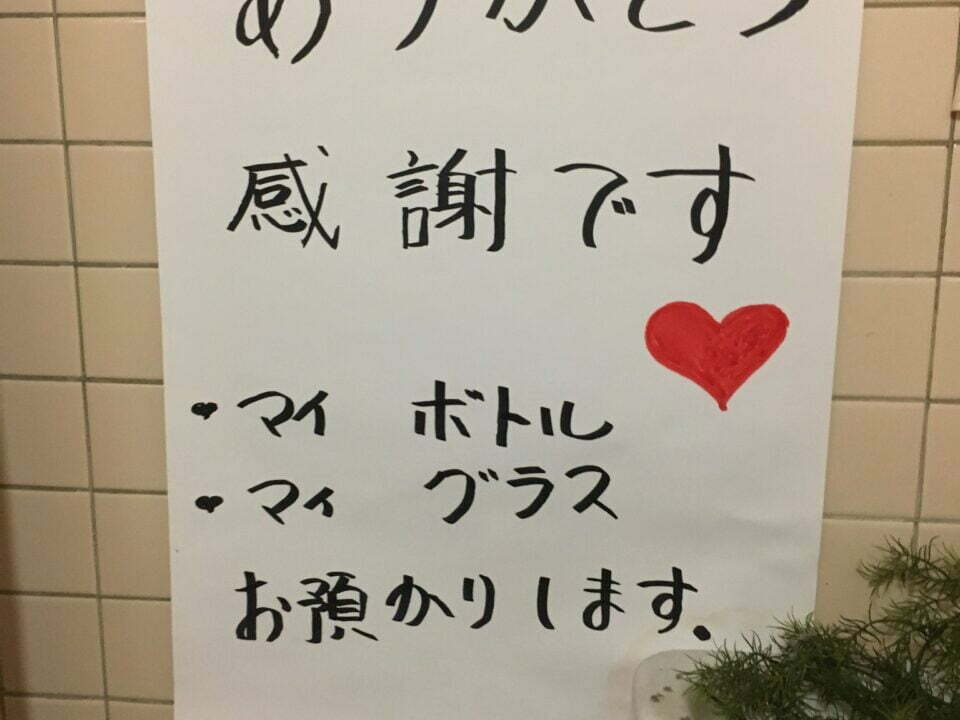 ありがとう
感謝です
・マイ ボトル
・マイ グラス
お預かりします.